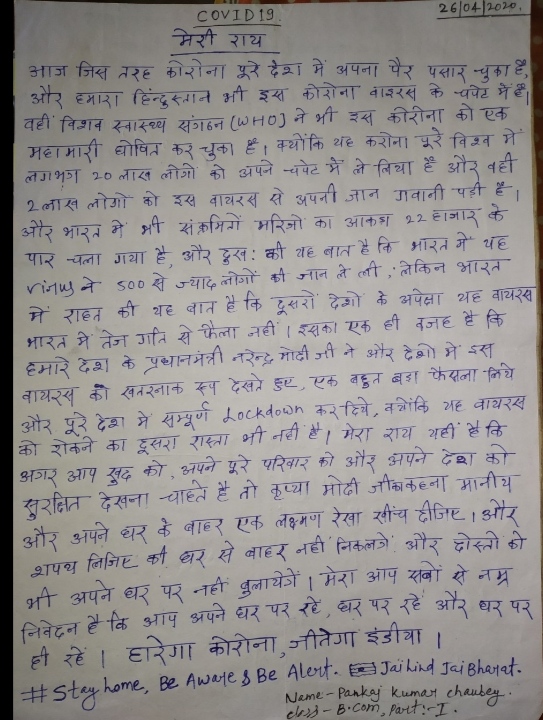 COVID19.
26/04/2020.
मेरी राय
आज जिस तरह कोरोना पूरे देश में अपना पैर पसार चुका है,
और हमारा हिन्दुस्तान भी इस कोरोना वाइरस के चपेट में है।
वहीं विशव स्वास्थ्य संगठन (WHO) ने भी इस कोरोना को एक
महामारी घोषित कर चुका है। क्योंकि यह करोना पूरे विश्व में
लगभग 20 लाख लोगों को अपने चपेट में ले लिया है और वही
2 लाख लोगों को इस वायरस से अपनी जान गवानी पड़ी है।
और भारत में भी संक्रमितों मरिजों का आकड़ा 22 हाजार के
पार चला गया है, और दुख: की यह बात है कि भारत में यह
virus ने 500 से ज्याद लोगों की जान ले ली, लेकिन भारत
में राहत की यह बात है कि दूसरों देशों के अपेक्षा यह वायरस
भारत में तेज गति से फैला नहीं। इसका एक ही वजह है कि
हमारे देश के प्रधानमंत्री नरेन्द्र मोदी जी ने और देशो में इस
वायरस को खतरनाक रूप देखते हुए, एक बहुत बड़ा फैसला लिये
और पूरे देश में सम्पूर्ण Lockdown कर दिये, क्योंकि यह वायरस
को रोकने का दूसरा रास्ता भी नहीं है। मेरा राय यहीं है कि
अगर आप खुद को, अपने पूरे परिवार को और अपने देश को
सुरक्षित देखना चाहते है तो कृप्या मोदी जी का कहना मानीय
और अपने घर के बाहर एक लक्ष्मण रेखा खींच दीजिए। और
शपथ लिजिए की घर से बाहर नहीं निकलगें और दोस्तो को
भी अपने घर पर नहीं बुलायेगें। मेरा आप सबों से नम्र
निवेदन है कि आप अपने घर पर रहें, घर पर रहें और घर पर
ही रहें। हारेगा कोरोना, जीतेगा इंडीया।
# Stay home, Be Aware & Be Alert. Jai hind Jai Bharat.
Name- Pankaj Kumar chaubey.
class - B.Com, Part:- I.